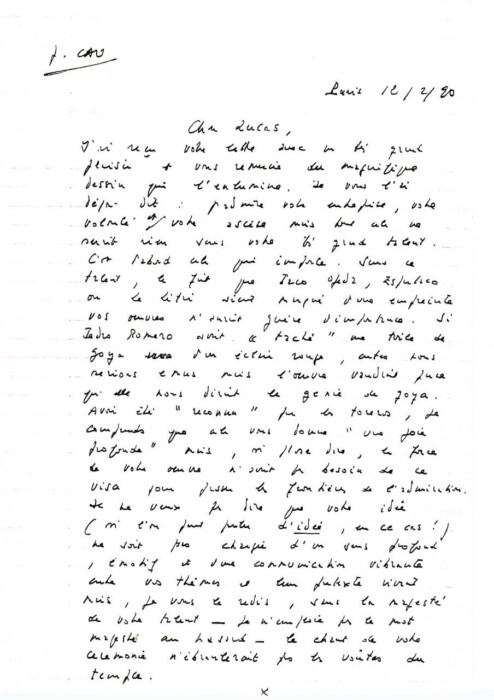 J. CAU
Paris 12/2/90
Cher Lucas,
J'ai reçu votre lettre avec un très grand
plaisir et vous remercie du magnifique
dessin qui l'enlumine. Je vous l'ai
déjà dit : j'admire votre entreprise, votre
volonté et votre ascèse mais tout cela ne
serait rien sans votre très grand talent.
C'est d'abord cela qui importe. Sans ce
talent, le fait que Paco Ojeda, Espartaco
ou Litri aient marqué d'une empreinte
vos œuvres n'aurait guère d'importance. Si
Pedro Romero avait "taché" une toile de
Goya d'un éclair rouge, certes nous
serions émus mais l'œuvre vaudrait parce
qu'elle nous dirait le génie de Goya.
Avoir été "reconnu" par les toreros, je
comprends que cela vous donne "une joie
profonde" mais, si j'ose dire, la force
de votre œuvre n'avait pas besoin de ce
visa pour passer les frontières de l'admiration.
Je ne veux pas dire que votre idée
(si l'on peut parler d'idée, en ce cas !)
ne soit pas chargée d'un sens profond
, émotif et d'une communication vibrante
entre vos thèmes et leur prétexte vivant
mais, je vous le redis, sans la majesté
de votre talent — je n'emploie pas le mot
majesté au hasard — le chant de votre
cérémonie n'ébranlerait pas les voûtes du
temple.